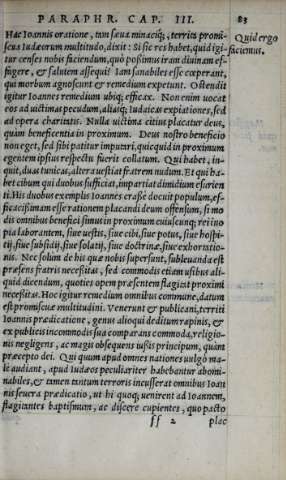 PARAPHR. CAP. III. 83
Hac Ioannis oratione, tam sæua minaciq́;, territa promi-
scua Iudæorum multitudo, dixit: Si sic res habet, quid igi-
tur censes nobis faciendum, quò possimus iram diuinam ef-
fugere, & salutem assequi? Iam sanabiles esse cœperant,
qui morbum agnoscunt & remedium expetunt. Ostendit
igitur Ioannes remedium ubiq; efficax. Non enim uocat
eos ad uictimas pecudum, aliasq; Iudaicas expiationes, sed
ad opera charitatis. Nulla uictima citius placatur deus,
quàm beneficentia in proximum. Deus nostro beneficio
non eget, sed sibi patitur imputari, quicquid in proximum
egentem ipsius respectu fuerit collatum. Qui habet, in-
quit, duas tunicas, altera uestiat fratrem nudum. Et qui ha-
bet cibum qui duobus sufficiat, impartiat dimidium esurien
ti. His duobus exemplis Ioannes crassè docuit populum, ef-
ficacissimam esse rationem placandi deum offensum, si mo
dis omnibus benefici simus in proximum cuiuscunq; rei ino
pia laborantem, siue uestis, siue cibi, siue potus, siue hospi-
tij, siue subsidij, siue solatij, siue doctrinæ, siue exhortatio-
nis. Nec solum de his quæ nobis supersunt, subleuanda est
præsens fratris necessitas, sed commodis etiam usibus ali-
quid dicendum, quoties opem præsentem flagitat proximi
necessitas. Hoc igitur remedium omnibus commune, datum
est promiscuæ multitudini. Venerunt & publicani, territi
Ioannis prædicatione, genus alioqui deditum rapinis, &
ex publicis incommodis sua comparans commoda, religio-
nis negligens, ac magis obsequens iussis principum, quàm
præcepto dei. Qui quum apud omnes nationes uulgò ma-
le audiant, apud Iudæos peculiariter habebantur abomi-
nabiles, & tamen tantum terroris incusserat omnibus Ioan
nis seuera prædicatio, ut hi quoq; uenirent ad Ioannem,
flagitantes baptismum, ac discere cupientes, quo pacto
ff 2 plac
Quid ergo
faciemus.